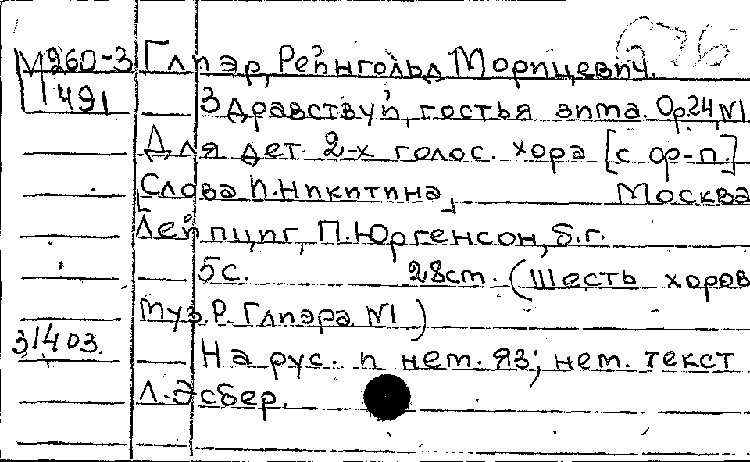 М260-3 Глиэр, Рейнгольд Морицевич.
491 Здравствуй, гостья зима. Ор.24, №1
Для дет. 2-х голос. хора [с ф-п.]
[Слова И. Никитина] Москва
Лейпциг, П. Юргенсон, б.г.
5с. 28см. (Шесть хоров
муз. Р. Глиэра №1)
31403
На рус. и нем. яз; нем. текст
Л. Эсбер.